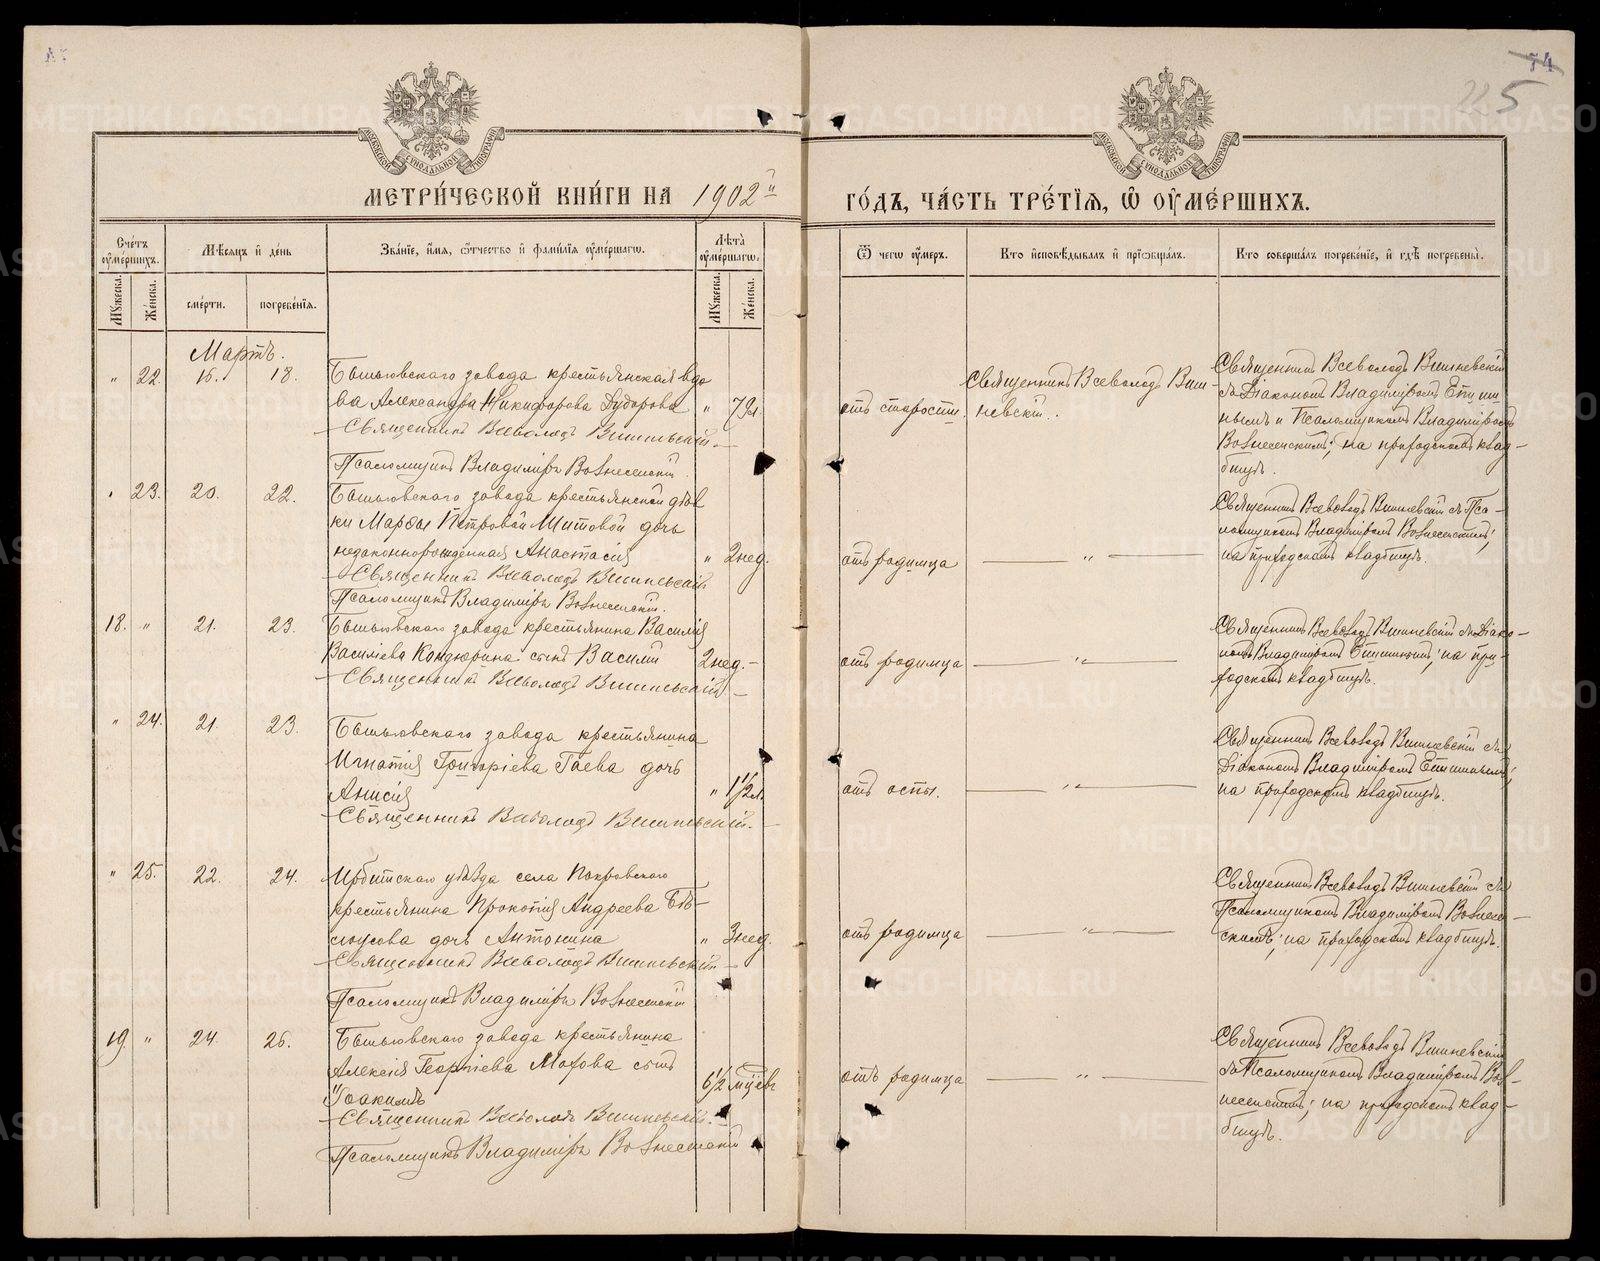 74
225
МОСКОВСКОЙ СѴНОДАЛЬНОЙ ТИПОГРАФІИ
МОСКОВСКОЙ СѴНОДАЛЬНОЙ ТИПОГРАФІИ
МЕТРИ́ЧЕСКОЙ КНИ́ГИ НА 1902й
ГО́ДЪ, ЧА́СТЬ ТРЕ́ТІѦ, Ѡ ОУ҆МЕ́РШИХЪ.
Счетъ оумершихъ.
Мужеска.
Женска.
Мѣсяцъ и день
смерти.
погребенія.
Званіе, имя, отчество и фамилія оумершагѡ.
Лѣта оумершагѡ.
Мужеска.
Женска.
Ѿ чегѡ оумеръ.
Кто исповѣдывалъ и пріобщалъ.
Кто совершалъ погребеніе, и гдѣ погребены.
Мартъ.
" 22. 16. 18.
заводa крестьянская вдо
ва Александра Никифорова Дудорова " 72л.
Священникъ Всеволодъ Вишневскій.
Псаломщикъ Владиміръ Вознесенскій.
отъ старости.
Священникъ Всеволодъ Виш-
невскій.
Священникъ Всеволодъ Вишневскій
съ Діакономъ Владиміромъ
и Псаломщикомъ Владиміромъ
Вознесенскимъ; на приходскомъ клад-
бищѣ.
" 23. 20. 22.
завода крестьянской дѣв
ки Марѳы Петровой Шитовой дочь
незаконнорожденная Анастасія " 2нед.
Священникъ Всеволодъ Вишневскій
Псаломщикъ Владиміръ Вознесенскій.
отъ родимца
— " —
Священникъ Всеволодъ Вишневскій съ Пса-
ломщикомъ Владиміромъ Вознесенскимъ;
на приходскомъ кладбищѣ.
18. " 21. 23.
завода крестьянина Василія
Василіева Кондюрина сынъ Василій 2нед. -
Священникъ Всеволодъ Вишневскій
отъ родимца
— " —
Священникъ Всеволодъ Вишневскій съ Діако-
номъ Владиміромъ на при-
ходскомъ кладбищѣ.
" 24. 21. 23.
завода крестьянина
Игнатія Григоріева Гаева дочь
Анисія " 1 1/2л.
Священникъ Всеволодъ Вишневскій.
отъ оспы.
— " —
Священникъ Всеволодъ Вишневскій съ
Діакономъ Владиміромъ
на приходскомъ кладбищѣ.
" 25. 22. 24.
Ирбитскаго уѣзда села Покровскаго
крестьянина Прокопія Андреева Бѣ-
лоусова дочь Антонина " 3нед.
Священникъ Всеволодъ Вишневскій.
Псаломщикъ Владиміръ Вознесенскій
отъ родимца
— " —
Священникъ Всеволодъ Вишневскій съ
Псаломщикомъ Владиміромъ Вознесен-
скимъ; на приходскомъ кладбищѣ.
19. " 24. 26.
завода крестьянина
Алексія Георгіева Мохова сынъ
Іоакимъ 6 1/2 мцев
Священникъ Всеволодъ Вишневскій.
Псаломщикъ Владиміръ Вознесенскій
отъ родимца
— " —
Священникъ Всеволодъ Вишневскій
съ Псаломщикомъ Владиміромъ Воз-
несенскимъ; на приходскомъ клад-
бищѣ.
METRIKI.GASO-URAL.RU